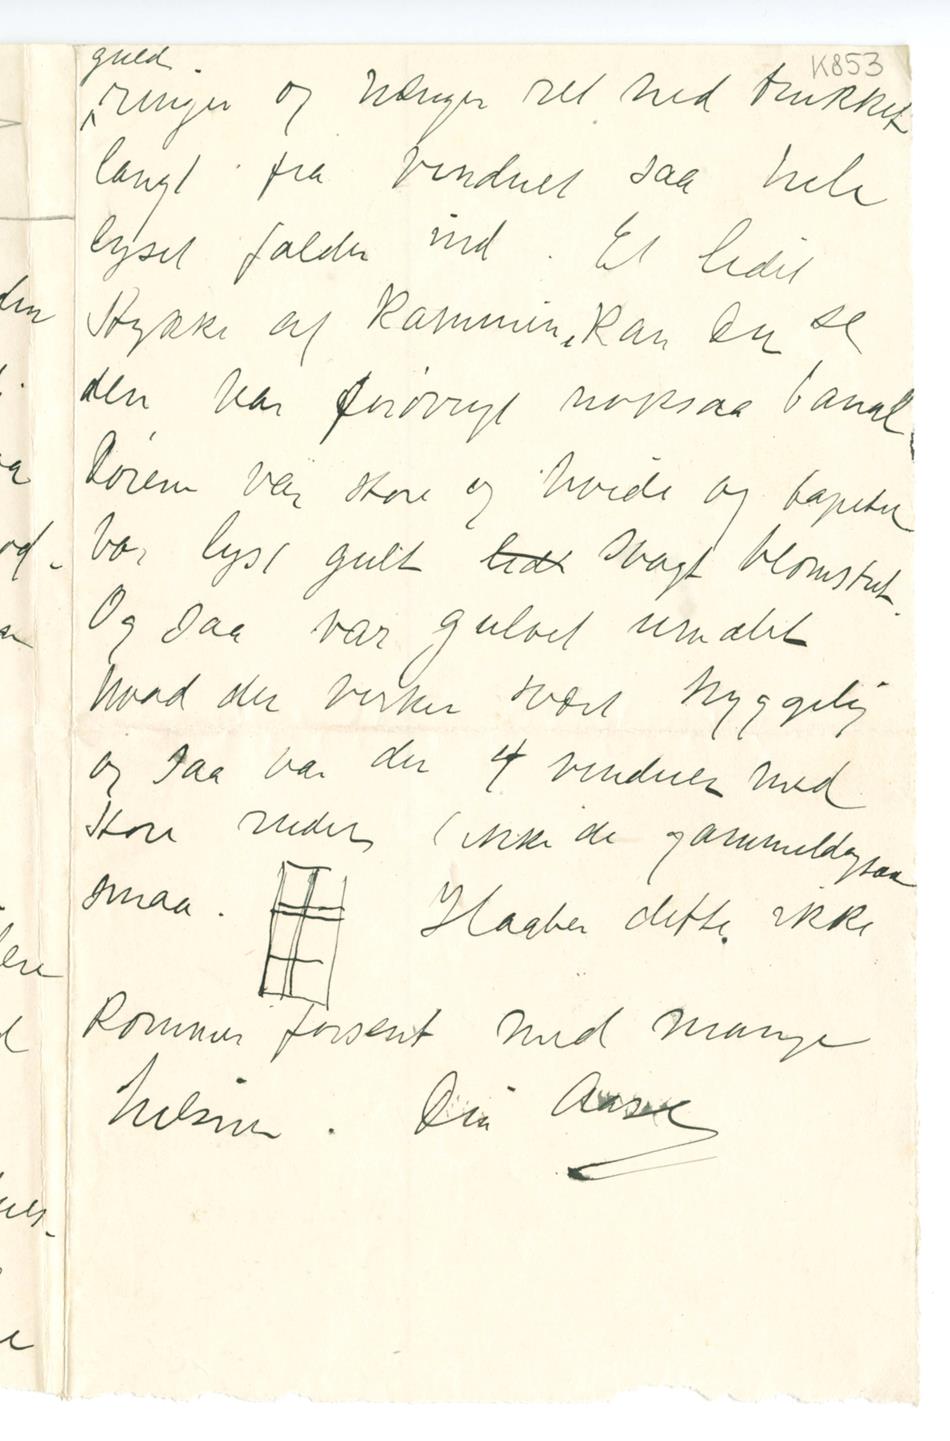 K853
guld
ringer og hænger ret ned trukket
langt fra vinduet saa hele
lyset falder ind. Et lidet
Stykke af Kaminen, kan Du se
den var forøvrigt noksaa banal.
Dørene var store og hvide og tapetet
var lyst gult lidt svagt blomstret.
Og saa var gulvet umalet
hvad der virker svært hyggelig
og saa var der 4 vinduer med
store ruder (ikke de gammeldagsaa
smaa. Haaber dette ikke
Kommer forsent med mange
hilsner. Din Aase